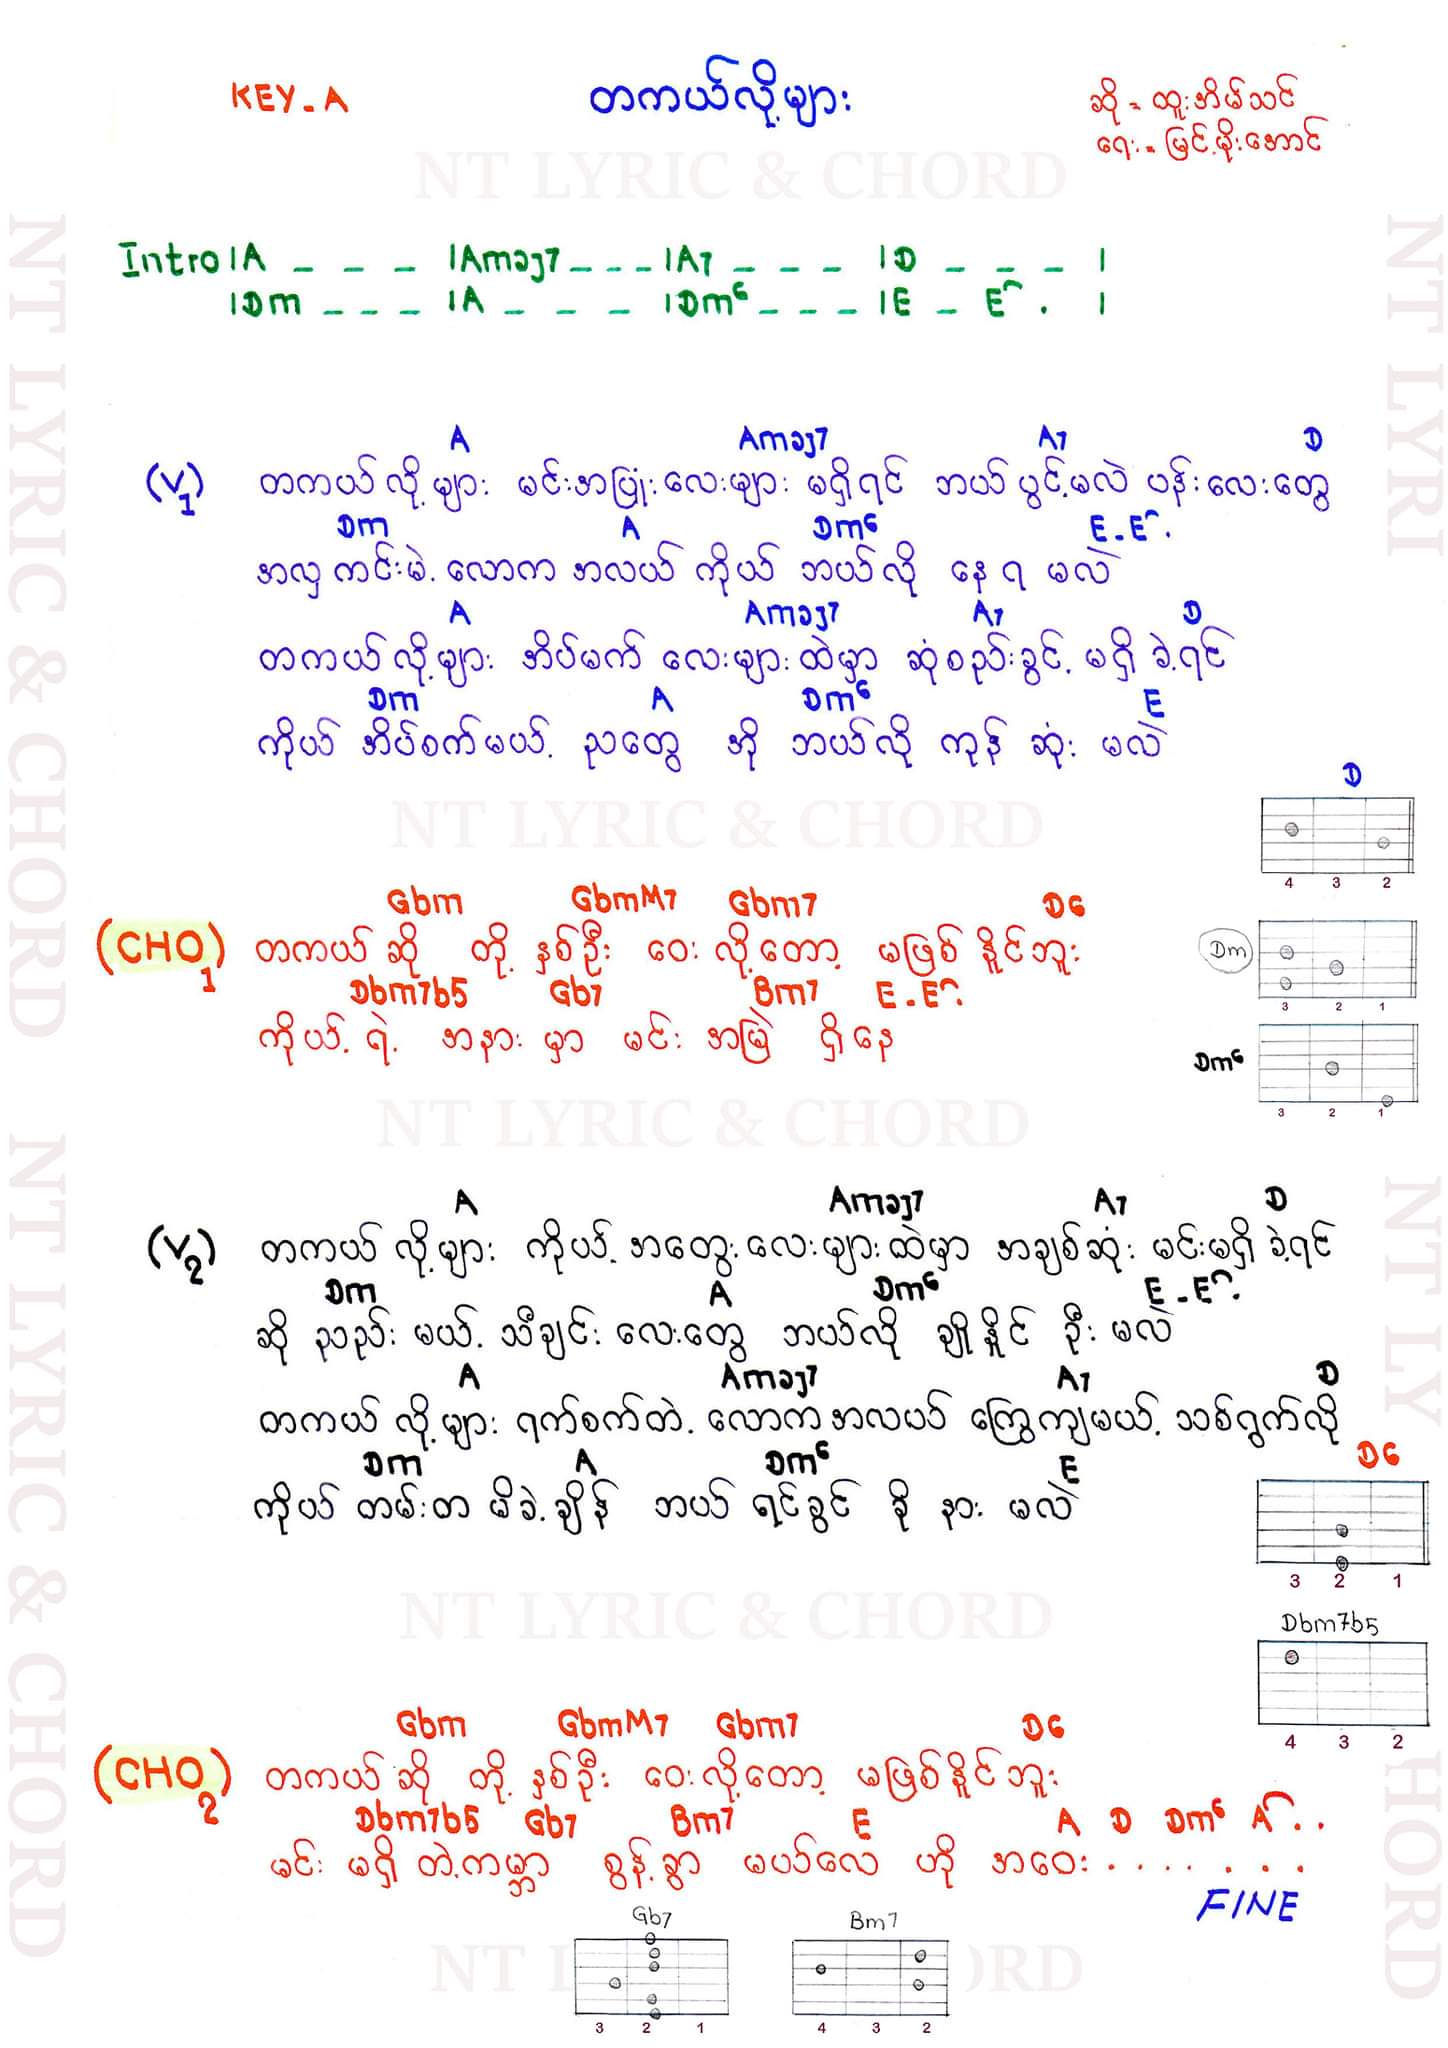 KEY - A
တကယ်လို့များ
ဆို = ထူးအိမ်သင်
ရေး = မြင့်မိုးအောင်
NT LYRIC & CHORD
Intro |A _ _ _ |Amaj7 _ _ _ |A7 _ _ _ |D _ _ _ |
|Dm _ _ _ |A _ _ _ |Dm6 _ _ _ |E _ E . |
A Amaj7 A7 D
(V1) တကယ်လို့များ မင်းအပြုံးလေးများ မရှိရင် ဘယ်ပွင့်မလဲ ပန်းလေးတွေ
Dm A Dm6 E - E .
အလှကင်းမဲ့လောကအလယ် ကိုယ် ဘယ်လို နေရမလဲ
A Amaj7 A7 D
တကယ်လို့များ အိပ်မက်လေးများထဲမှာ ဆုံစည်းခွင့် မရှိခဲ့ရင်
Dm A Dm6 E
ကိုယ် အိပ်စက်မယ့် ညတွေ အို ဘယ်လို ကုန်ဆုံးမလဲ
D
4 3 2
NT LYRIC & CHORD
Gbm GbmM7 Gbm7 D6
(CHO1) တကယ်ဆို တို့နှစ်ဦး ဝေးလို့တော့ မဖြစ်နိူင်ဘူး
Dbm7b5 Gb7 Bm7 E - E .
ကိုယ့်ရဲ့ အနားမှာ မင်း အမြဲ ရှိနေ
Dm
3 2 1
Dm6
3 2 1
NT LYRIC & CHORD
A Amaj7 A7 D
(V2) တကယ်လို့များ ကိုယ့်အတွေးလေးများထဲမှာ အချစ်ဆုံး မင်းမရှိခဲ့ရင်
Dm A Dm6 E - E .
ဆိုညည်းမယ့် သီချင်းလေးတွေ ဘယ်လို ချိုနိူင်ဦးမလဲ
A Amaj7 A7 D
တကယ်လို့များ ရက်စက်တဲ့လောကအလယ် ကြွေကျမယ့် သစ်ရွက်လို
Dm A Dm6 E
ကိုယ် တမ်းတမိခဲ့ချိန် ဘယ်ရင်ခွင် ခိုနားမလဲ
D6
3 2 1
NT LYRIC & CHORD
Dbm7b5
4 3 2
Gbm GbmM7 Gbm7 D6
(CHO2) တကယ်ဆို တို့နှစ်ဦး ဝေးလို့တော့ မဖြစ်နိူင်ဘူး
Dbm7b5 Gb7 Bm7 E A D Dm6 A . .
မင်း မရှိတဲ့ကမ္ဘာ စွန့်ခွာ မယ်လေ ဟို အဝေး . . . . . . .
FINE
Gb7
3 2 1
Bm7
4 3 2
NT LYRIC & CHORD
NT LYRIC & CHORD